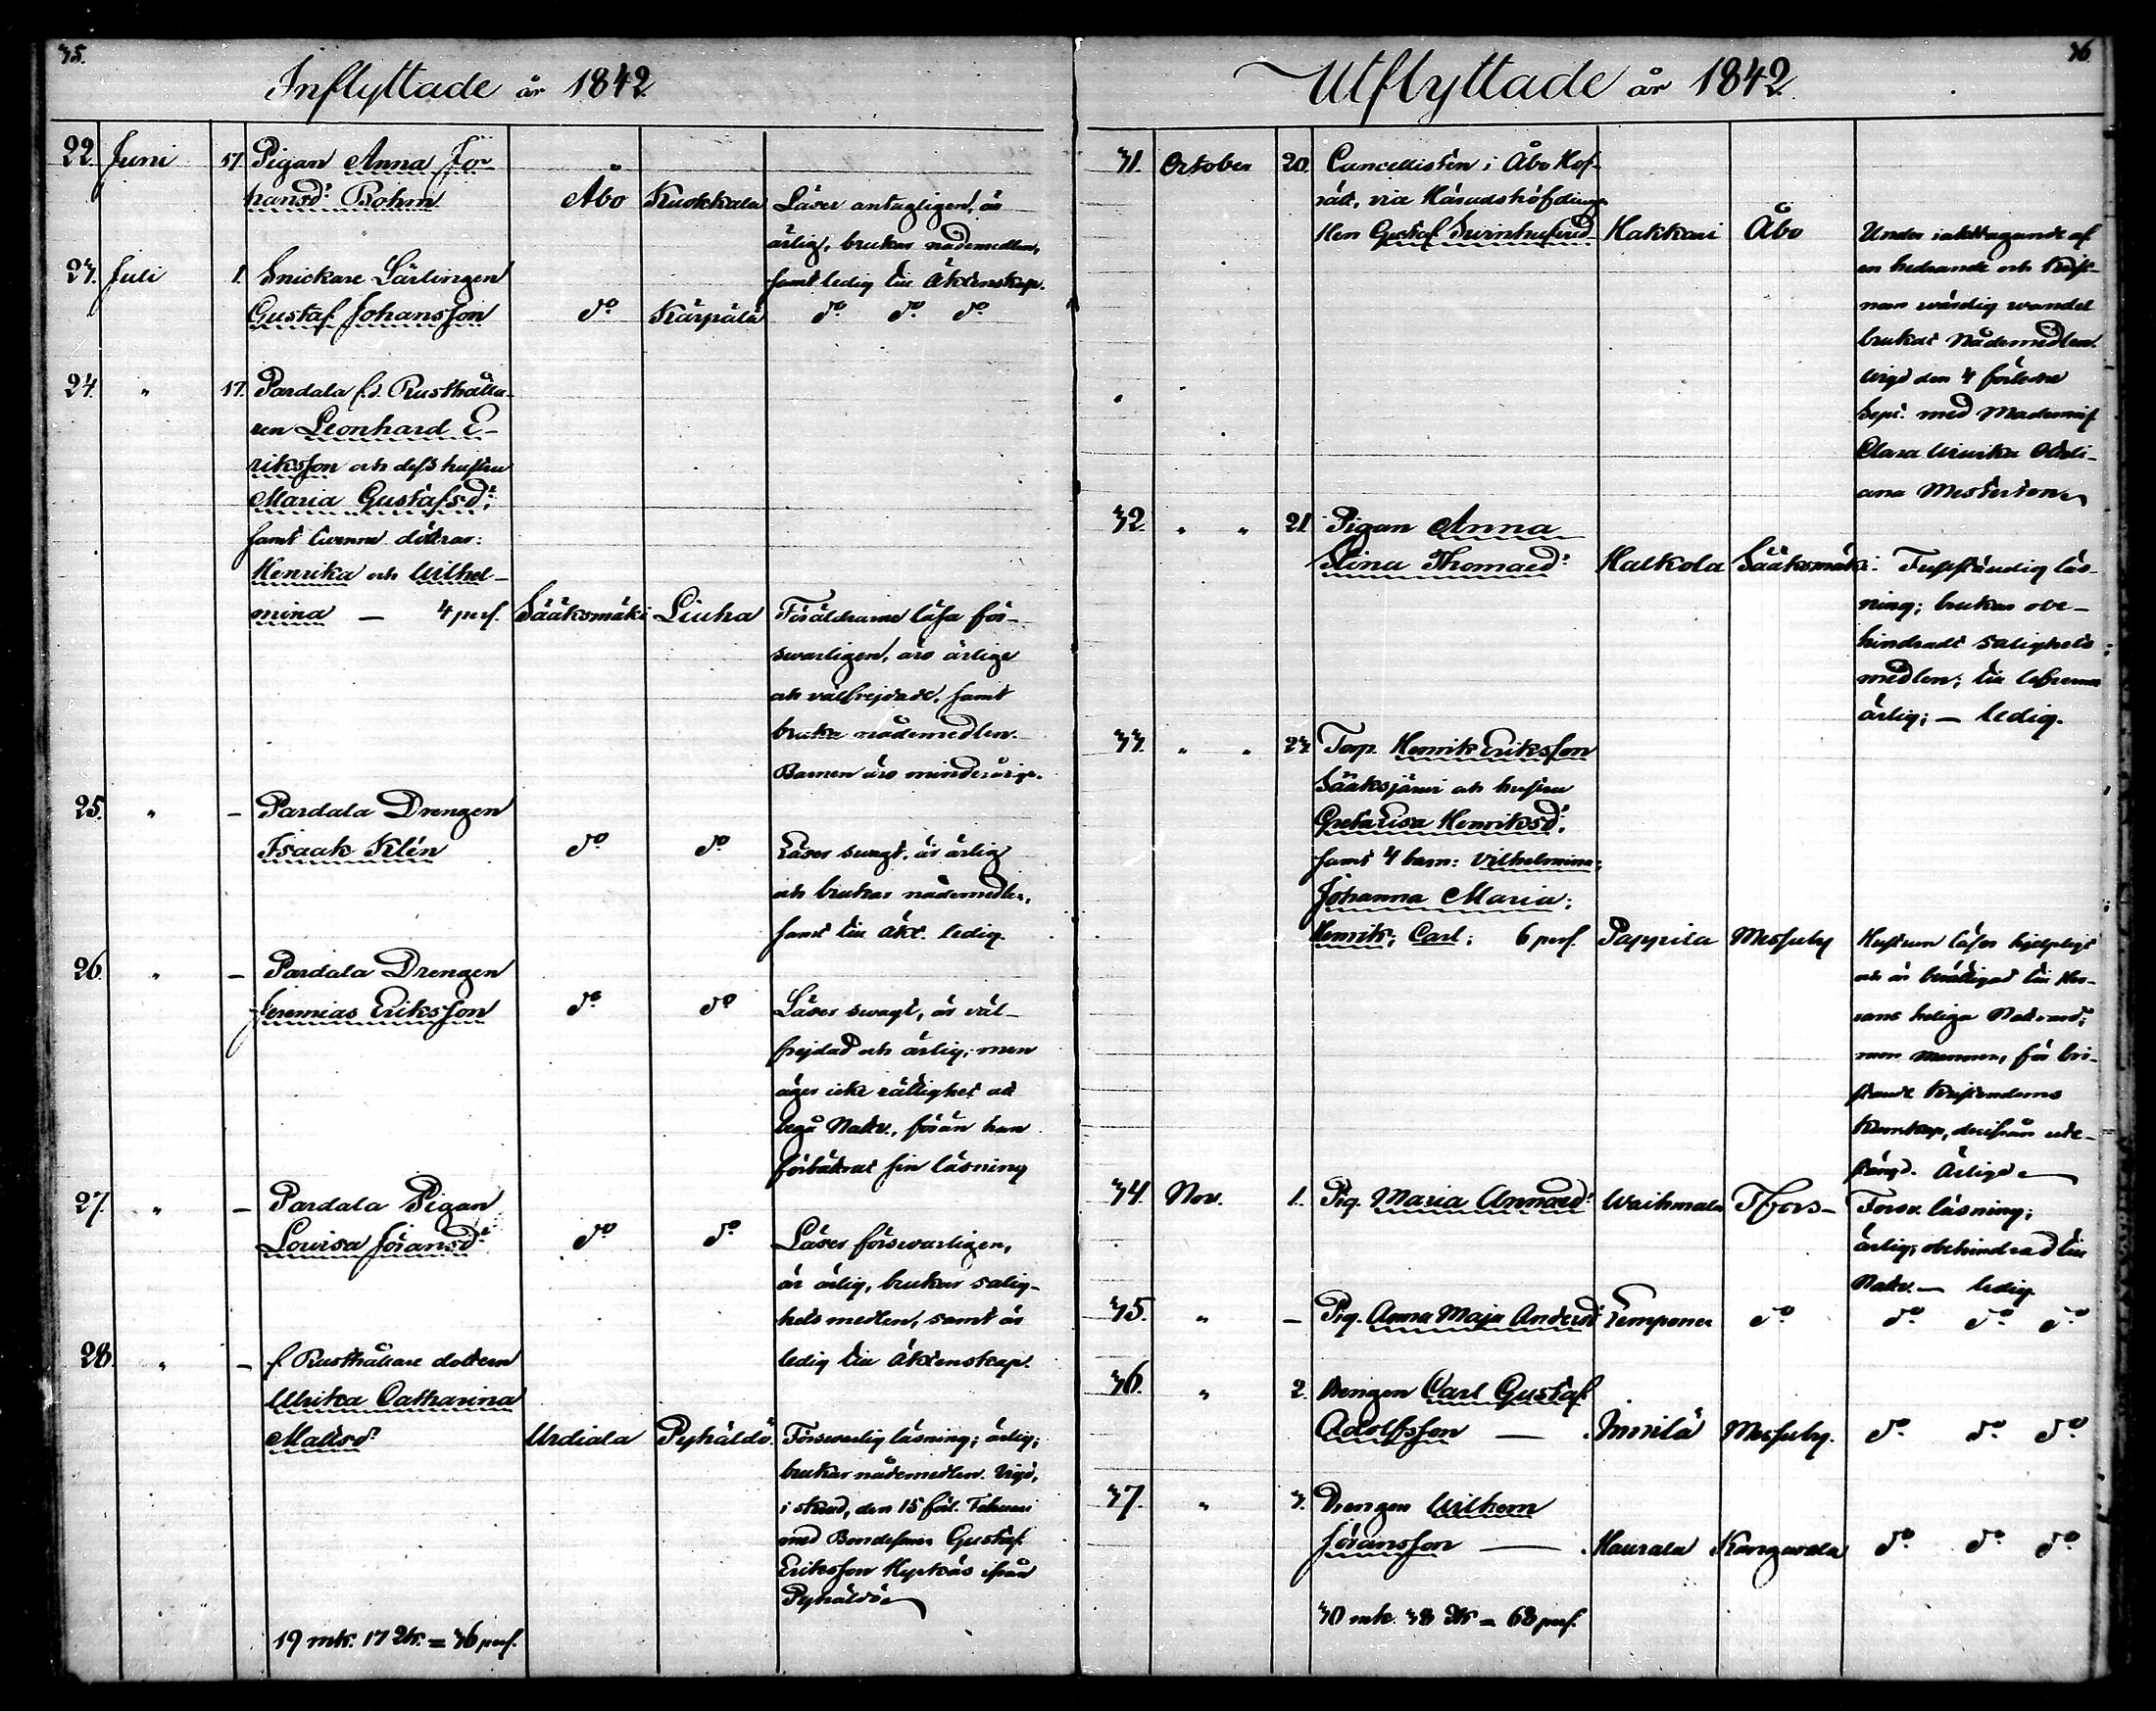 35.
Inflyttade år 1842.
22. Juni 17. Pigan Anna Jo-
hansd:r Bohm Åbo Kuokkala Läser antagligen, är
ärlig, brukar nådemedlen,
samt ledig till Äktenskap.
23. Juli 1. Snickare Lärlingen
Gustaf Johansson d:o Kärpälä d:o d:o d:o
24. " 17. Pardala f.d. Rusthålla-
ren Leonhard E-
riksson och dess hustru
Maria Gustafsd:r
samt tvenne döttrar:
Henrika och Wilhel-
mina — 4 pers. Sääksmäki Liuha Föräldrarne läsa för-
swarligen, äro ärlige
och välfrejdade, samt
bruka nådemedlen.
Barnen äro minderårige.
25. " — Pardala Drengen
Isaak Klén d:o d:o Läser svagt, är ärlig
och brukar nådemedlen,
samt till äkt. ledig.
26. " — Pardala Drengen
Jeremias Eriksson d:o d:o Läser swagt, är väl-
frejdad och ärlig; men
äger icke rättighet att
begå Nattv., förän han
förbättrat sin läsning
27. " — Pardala Pigan
Lovisa Göransd:r d:o d:o Läser förswarligen,
är ärlig, brukar salig-
hets medlen, samt är
ledig till Äktenskap.
28. " — f. Rusthållare dottern
Ulrika Catharina
Mattsd:r Urdiala Pyhäldö. Förswarlig läsning; ärlig;
brukar nådemedlen. Vigd,
i den 15 förl. Februari
med Bondesonen Gustaf
Eriksson ifrån
Pyhäldö
19 mk. 17 qk. = 36 pers.
36.
Utflyttade år 1842.
31. October 20. Cancellisten i Åbo Hof-
rätt, vice Häradshöfdingen
Herr Gustaf Svinhufvud Hakkari Åbo Under iakttagande af
en hedrande och Krist-
nan wärdig wandel
brukat Nådemedlen.
Wigd den 4 förledne
Sept. med Mademois.
Clara Ulrika Ottili-
ana Mesterton
32. " " 21. Pigan Anna
Stina Thomasd:r Halkola Sääksmäki. Fullständig läs-
ning; brukar obe-
hindradt salighets
medlen; till lefvernet
ärlig; — ledig.
33. " " 23. Torp. Henrik Eriksson
Sääksjärvi och hustru
Greta Lisa Henriksd:r
samt 4 barn: Vilhelmina;
Johanna Maria;
Henrik; Carl; 6 pers. Pappila Messuby Hustrun läser hjelpligt
och är berättigad till Her-
rans heliga Nattvard;
men mannen, för bri-
stande Kristendoms
Kunskap, derifrån ute-
stängd. Ärlige
34. Nov. 1. Pig. Maria Annasd:r Waihmala Tfors — Förs. läsning;
ärlig; obehindrad till
Nattv. — ledig
35. " — Pig. Anna Maja Andersd:r Lemponen d:o d:o d:o d:o
36. " 2. Drengen Carl Gustaf
Adolfsson — Innilä Messuby. d:o d:o d:o
37. " 3. Drengen Wilhem
Göransson — Haurala Kangasala d:o d:o d:o
30 mk. 38 qk = 68 pers.